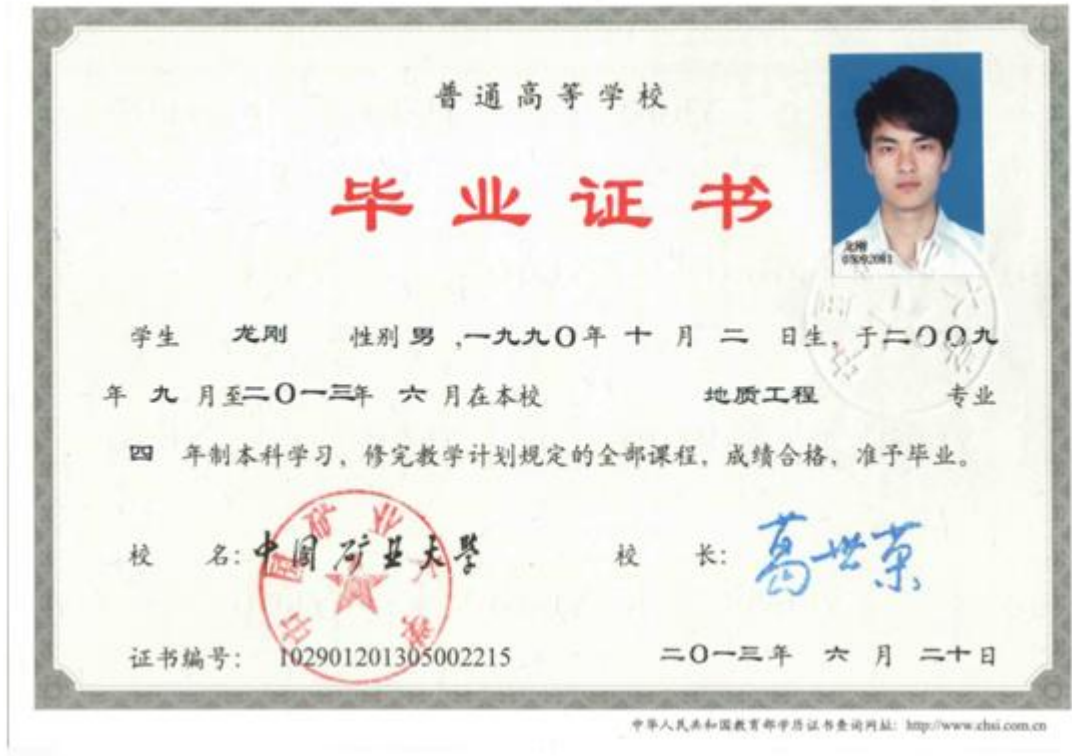 普通高等学校
毕业证书
龙刚
05092081
学生 龙刚 性别 男 ,一九九〇年 十 月 二 日生, 于二〇〇九
年 九 月至二〇一三年 六 月在本校 地质工程 专业
四 年制本科学习、修完教学计划规定的全部课程, 成绩合格, 准予毕业。
校 名: 中国矿业大学 校 长: 葛世荣
中国矿业大学
证书编号: 102901201305002215 二〇一三年 六 月 二十日
中华人民共和国教育部学历证书查询网址: http://www.chsi.com.cn